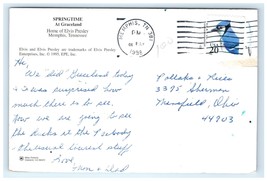 SPRINGTIME
At Graceland
Home of Elvis Presley
Memphis, Tennessee
Elvis and Elvis Presley are trademarks of Elvis Presley
Enterprises, Inc. © 1995, EPE, Inc.
MEMPHIS, TN 381
PM
1996
20
Hi,
We did Graceland today
& I was surprised how
much there is to see.
Now we are going to see
the ducks at the Peabody
- the usual tourist stuff
Love,
Mom & Dad
3395 Sherman
Mansfield, Ohio
44903